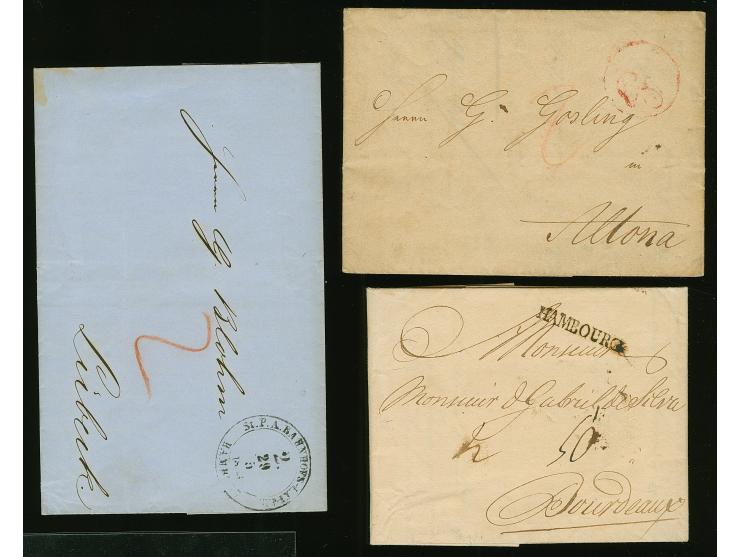 Herrn G. Blohm
Lübeck.
2
St. P. A. BAHNHOFS-
2
29
5
Herrn G. Gosling
in
Altona
HAMBOURG
Monsieur
Monsieur D Gabriel de Silva
50
Bourdeaux